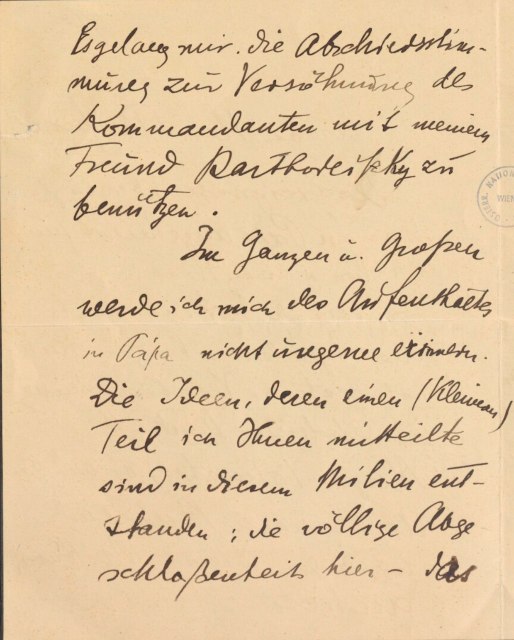 Es gelang mir. die Abschiedsstim-
mung zur Versöhnung des
Kommandanten mit meinem
Freund zu
benützen.
Im Ganzen u. Großen
werde ich mich des Aufenthaltes
in Pápa nicht ungerne erinnern.
Die Ideen, deren einen (kleineren)
Teil ich Ihnen mitteilte
sind in diesem Milieu ent-
standen; die völlige Abge
schloßenheit hier – das
ÖSTERR. NATION
WIEN